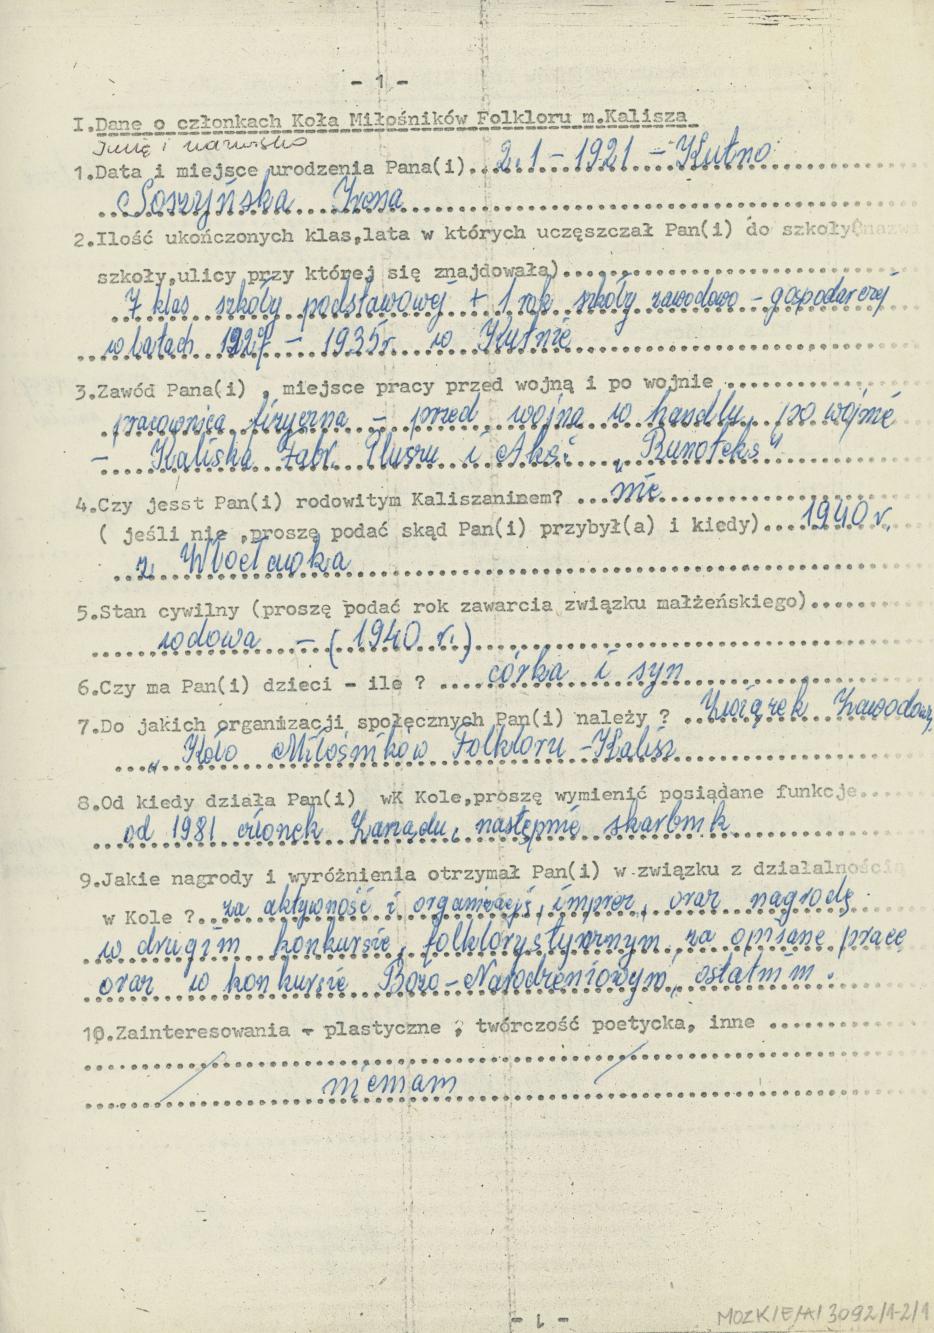 - 1 -
I.Dane o członkach Koła Miłośników Folkloru m.Kalisza
Imię i nazwisko
1.Data i miejsce urodzenia Pana(i)..2.1 – 1921 – Kutno
Soszyńska Irena
2.Ilość ukończonych klas,lata w których uczęszczał Pan(i) do szkoły(nazwa
szkoły,ulicy przy której się znajdowała)
7 klas szkoły podstawowej + 1 rok szkóły zawodowo – gospodarczej
w latach 1927 – 1935r w Kutnie
3.Zawód Pana(i) , miejsce pracy przed wojną i po wojnie
pracownica fizyczna – przed wojna w handlu, po wojnie
– Kaliska Fabr. Pluszu i Aks: „Runoteks"
4.Czy jesst Pan(i) rodowitym Kaliszaninem? ...nie
( jeśli nie ,proszę podać skąd Pan(i) przybył(a) i kiedy)....1940 r.
z Włocławka
5.Stan cywilny (proszę podać rok zawarcia związku małżeńskiego)
wdowa – (1940 r.)
6.Czy ma Pan(i) dzieci - ile ? ....córka i syn
7.Do jakich organizacji społęcznych Pan(i) należy ? ..Związek Zawodowy,
„Koło Miłośników Folkloru – Kalisz
8.Od kiedy działa Pan(i) wK Kole,proszę wymienić posiądane funkcje
od 1981 członek Zarządu, następnie skarbnik
9.Jakie nagrody i wyróżnienia otrzymał Pan(i) w związku z działalnością
w Kole ?..za aktywność i organizację, imprez, oraz nagrodę
w drugim konkursie, folklorystycznym za opisane pracę
oraz w konkursie Bożo – Narodzeniowym, ostatnim.
10.Zainteresowania - plastyczne , twórczość poetycka, inne
niemam
- 1 -
MOZK/E/A/3092/1-2/1